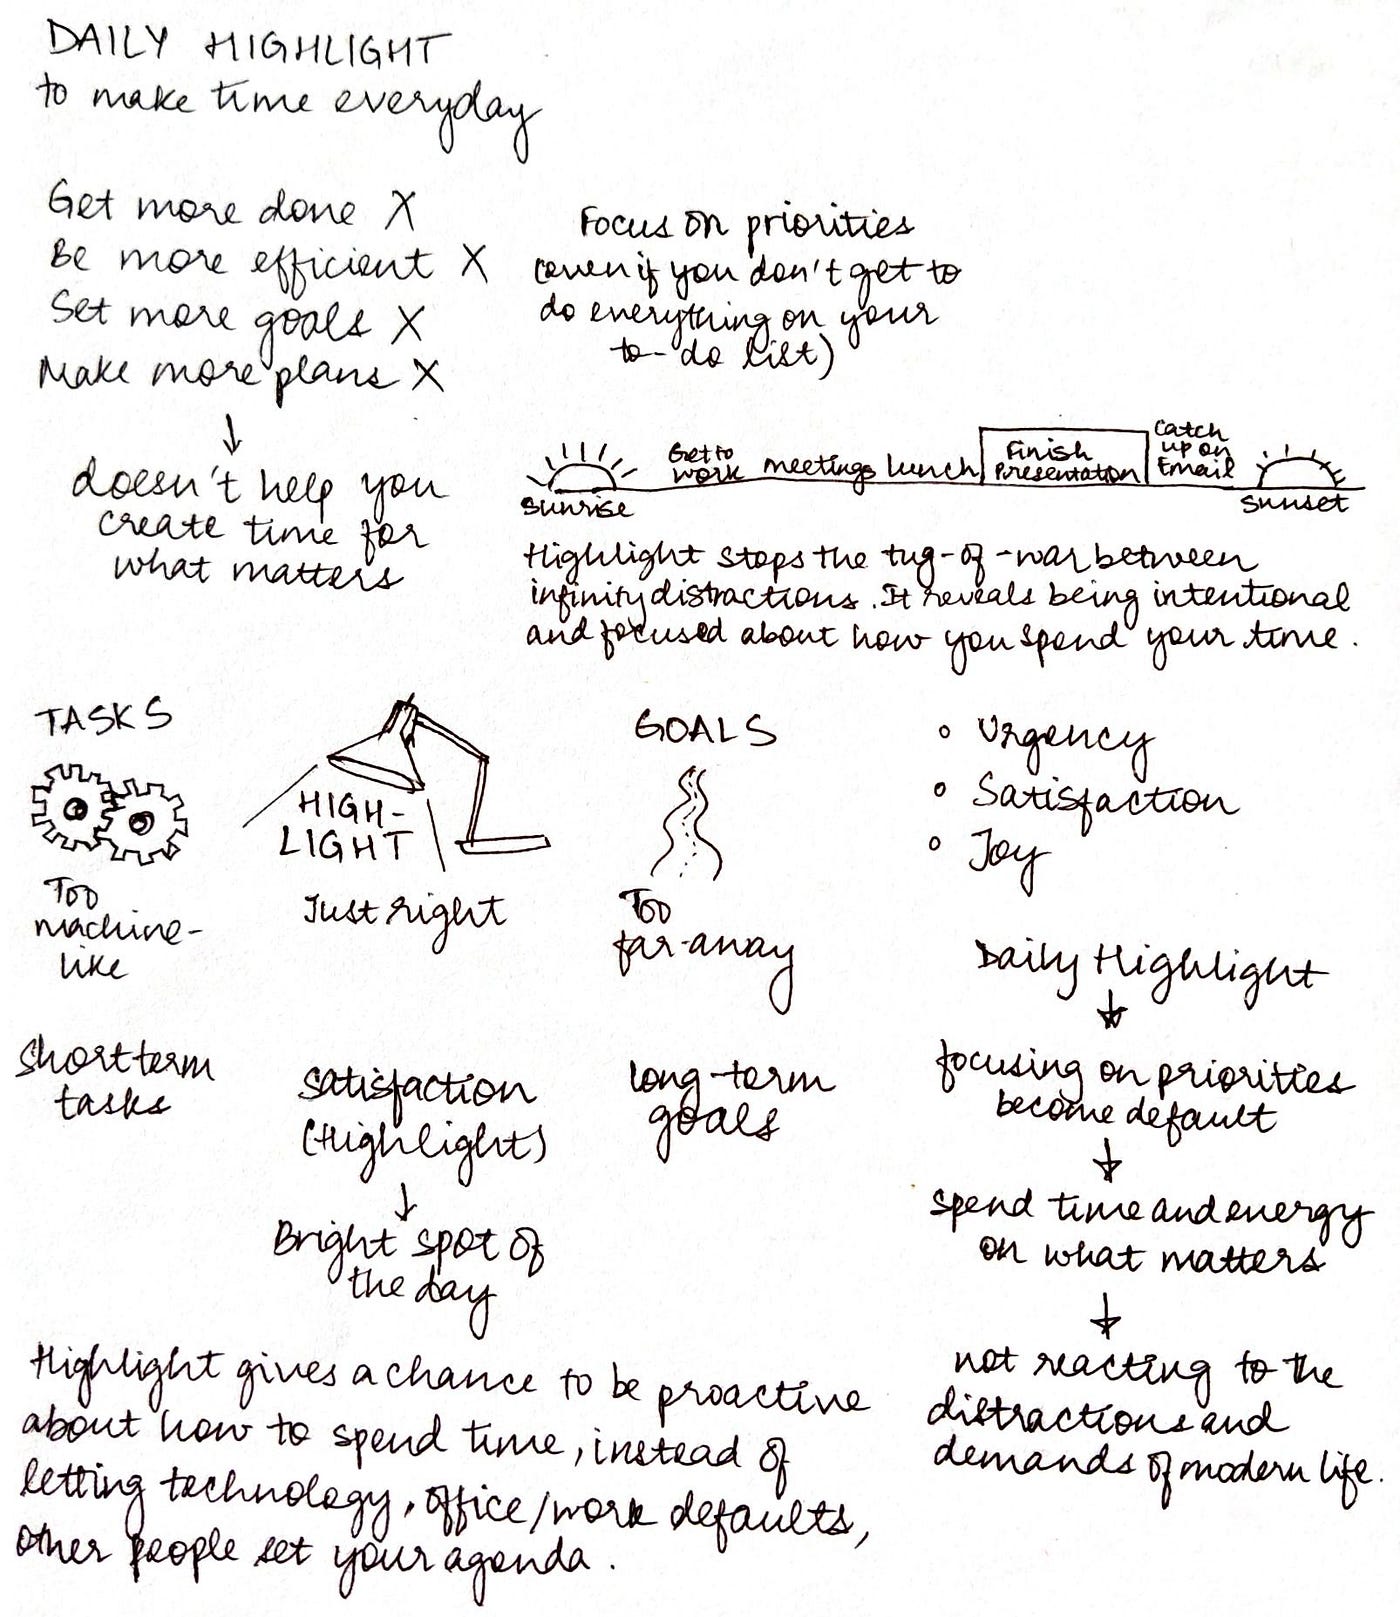 DAILY HIGHLIGHT
to make time everyday
Get more done X
Be more efficient X
Set more goals X
Make more plans X
doesn't help you
create time for
what matters
Focus on priorities
(even if you don't get to
do everything on your
to-do list)
sunrise
Get to
work
meetings
lunch
Finish
Presentation
Catch
up on
Email
sunset
Highlight stops the tug-of-war between
infinity distractions. It reveals being intentional
and focused about how you spend your time.
TASKS
Too
machine-
like
HIGH-
LIGHT
Just right
GOALS
Too
far-away
Short term
tasks
Satisfaction
(Highlight)
Bright spot of
the day
long-term
goals
Urgency
Satisfaction
Joy
Daily Highlight
focusing on priorities
become default
spend time and energy
on what matters
not reacting to the
distractions and
demands of modern life.
Highlight gives a chance to be proactive
about how to spend time, instead of
letting technology, office/work defaults,
other people set your agenda.